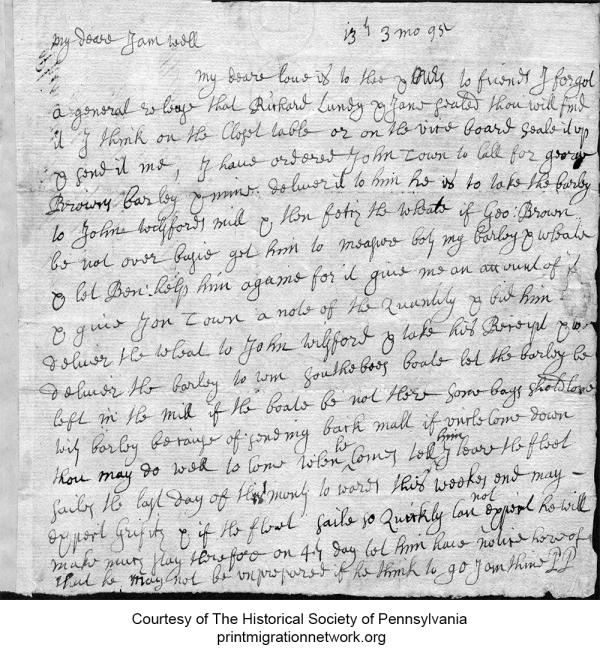 my deare I am well 13th 3 mo 95
my deare love is to thee & to friends I forgot
a general release that Richard Lundy & Jane sealed thou will find
it I think on the Closet table or on the board seale it up
& send it me, I have ordered John Town to call for george
Browns barley & mine deliver it to him he is to take the barley
to John wilsfords mill & then fetch the wheate if Geo: Brown
be not over busie get him to measure both my barley & wheate
& let Ben: help him againe for it give me an account of it
& give Jon Town a note of the Quantity & bid him
deliver the wheat to John wilsford & take his Receipt &
deliver the barley to wm Southebees boate let the barley be
left in the mill if the boate be not there some bags
with barley because of sending back malt if uncle come down
thou may do well to come when he comes tell him I leave the fleet
sailes the last day of this month to wards this weekes end may
expect Grifith & if the fleet saile so Quickly can not expect he will
make much stay therefore on 4th day let him have notice hereof
that he may not be unprepared if he think to go I am thine PP
Courtesy of The Historical Society of Pennsylvania
printmigrationnetwork.org